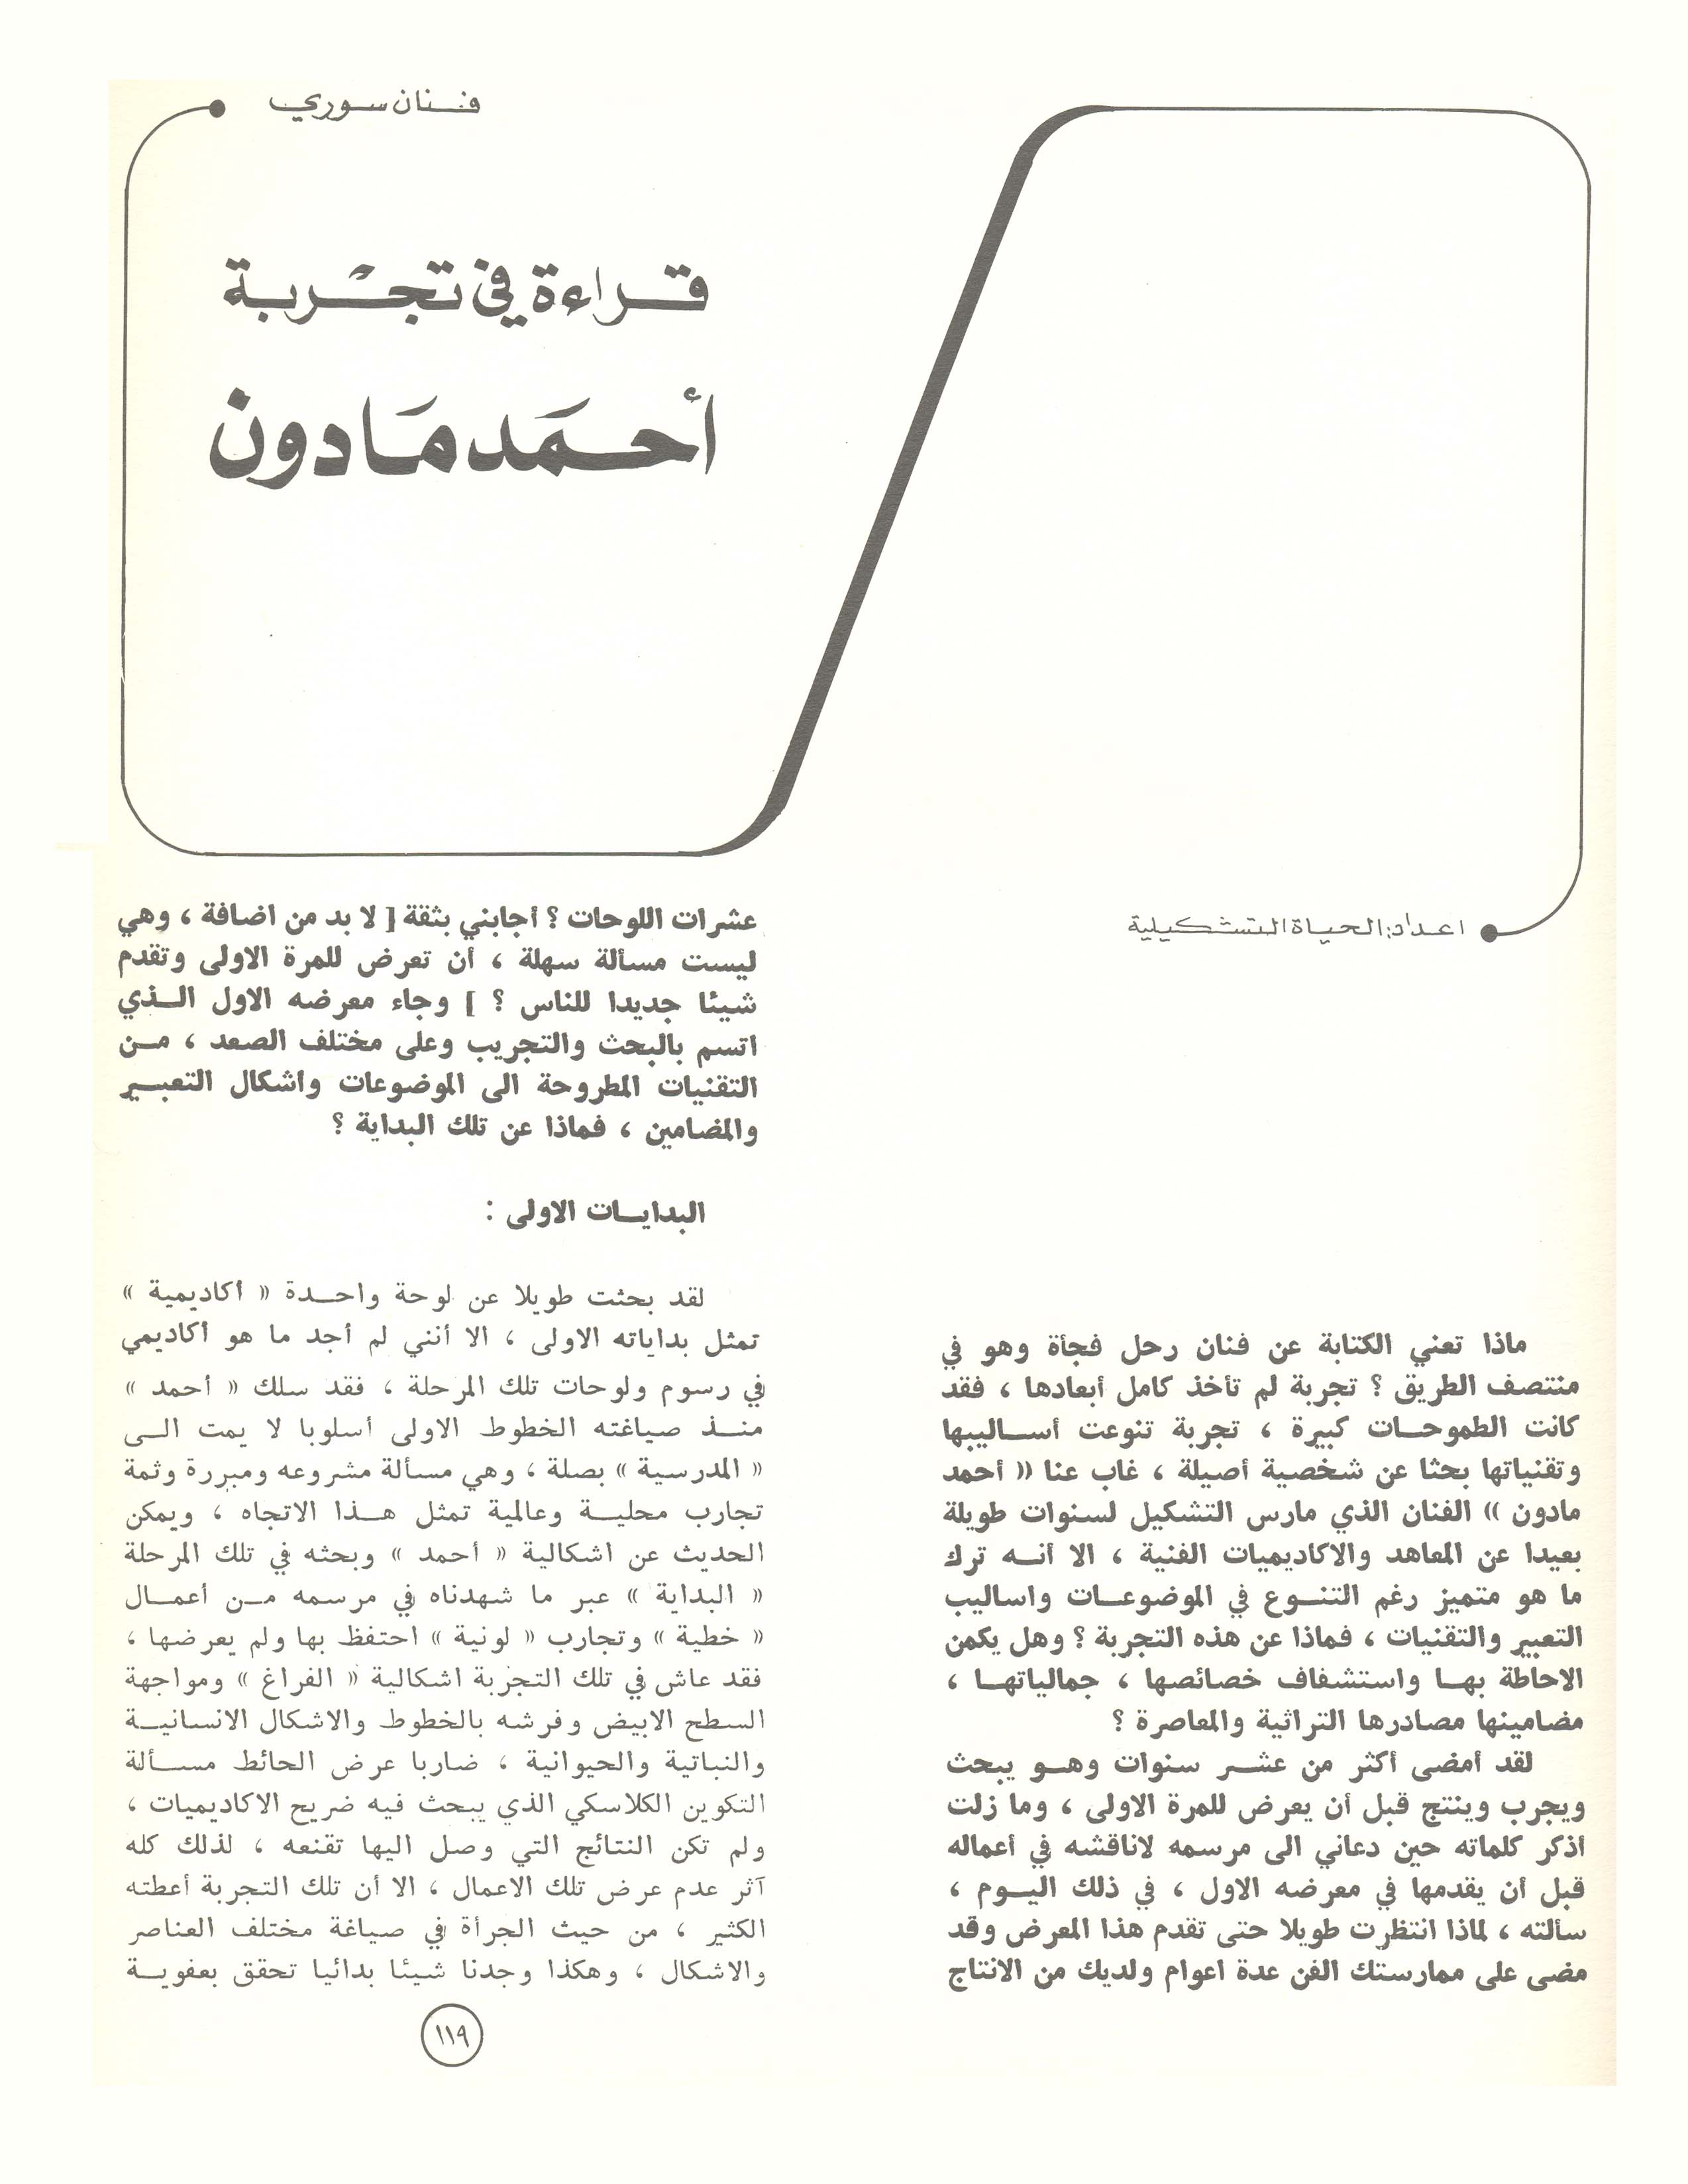 فنان سوري
قراءة في تجربة
أحمَد مَادون
اعداد: الحياة التشكيلية
ماذا تعني الكتابة عن فنان رحل فجأة وهو في
منتصف الطريق ؟ تجربة لم تأخذ كامل أبعادها ، فقد
كانت الطموحات كبيرة ، تجربة تنوعت أساليبها
وتقنياتها بحثا عن شخصية أصيلة ، غاب عنا « أحمد
مادون » الفنان الذي مارس التشكيل لسنوات طويلة
بعيدا عن المعاهد والاكاديميات الفنية ، الا أنه ترك
ما هو متميز رغم التنوع في الموضوعات واساليب
التعبير والتقنيات ، فماذا عن هذه التجربة ؟ وهل يكمن
الاحاطة بها واستشفاف خصائصها ، جمالياتها ،
مضامينها مصادرها التراثية والمعاصرة ؟
لقد أمضى أكثر من عشر سنوات وهو يبحث
ويجرب وينتج قبل أن يعرض للمرة الاولى ، وما زلت
أذكر كلماته حين دعاني الى مرسمه لاناقشه في أعماله
قبل أن يقدمها في معرضه الاول ، في ذلك اليوم ،
سألته ، لماذا انتظرت طويلا حتى تقدم هذا المعرض وقد
مضى على ممارستك الفن عدة اعوام ولديك من الانتاج
عشرات اللوحات ؟ أجابني بثقة [ لا بد من اضافة ، وهي
ليست مسألة سهلة ، أن تعرض للمرة الاولى وتقدم
شيئا جديدا للناس ؟ ] وجاء معرضه الاول الذي
اتسم بالبحث والتجريب وعلى مختلف الصعد ، من
التقنيات المطروحة الى الموضوعات واشكال التعبير
والمضامين ، فماذا عن تلك البداية ؟
البدايات الاولى :
لقد بحثت طويلا عن لوحة واحدة « أكاديمية »
تمثل بداياته الاولى ، الا أنني لم أجد ما هو أكاديمي
في رسوم ولوحات تلك المرحلة ، فقد سلك « أحمد »
منذ صياغته الخطوط الاولى أسلوبا لا يمت الى
« المدرسية » بصلة ، وهي مسألة مشروعه ومبررة وثمة
تجارب محلية وعالمية تمثل هذا الاتجاه ، ويمكن
الحديث عن اشكالية « أحمد » وبحثه في تلك المرحلة
« البداية » عبر ما شهدناه في مرسمه من أعمال
« خطية » وتجارب « لونية » احتفظ بها ولم يعرضها ،
فقد عاش في تلك التجربة اشكالية « الفراغ » ومواجهة
السطح الابيض وفرشه بالخطوط والاشكال الانسانية
والنباتية والحيوانية ، ضاربا عرض الحائط مسألة
التكوين الكلاسكي الذي يبحث فيه ضريح الاكاديميات ،
ولم تكن النتائج التي وصل اليها تقنعه ، لذلك كله
آثر عدم عرض تلك الاعمال ، الا أن تلك التجربة أعطته
الكثير ، من حيث الجرأة في صياغة مختلف العناصر
والاشكال ، وهكذا وجدنا شيئا بدائيا تحقق بعفوية
١١٩